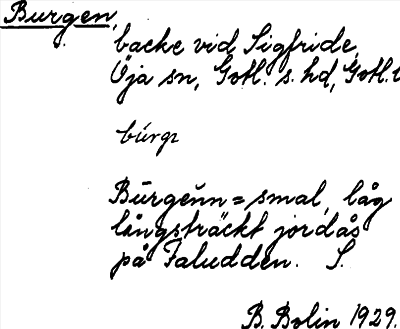 Burgen,
backe vid Sigfride,
Öja sn, Gotl. s. hd, Gotl.
búrgɪ
Būrgĕun = smal, låg
långsträckt jordås
på Faludden. S.
B. Bolin 1929.